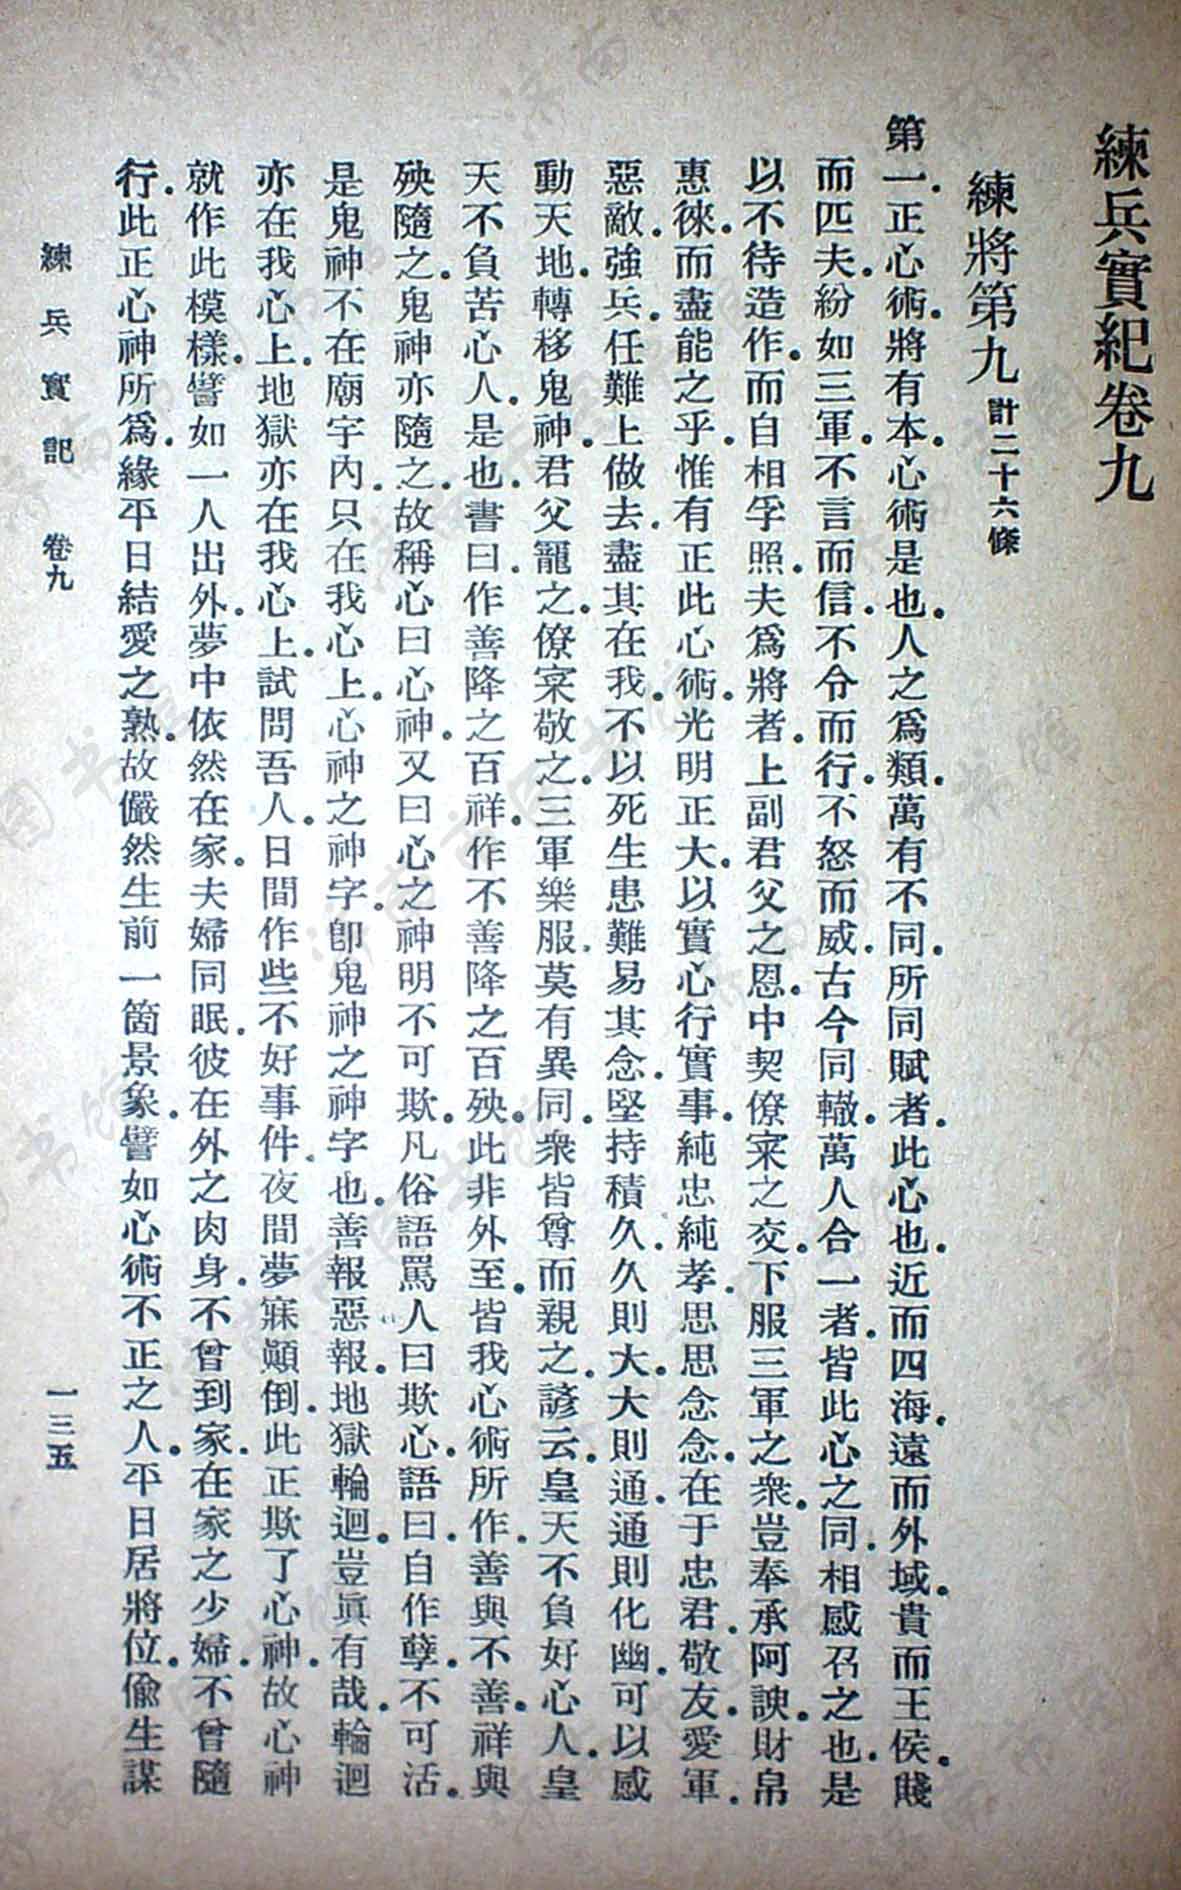 練兵實紀卷九
練將第九 計二十六條
第一.正心術.將有本.心術是也.人之爲類.萬有不同.所同賦者.此心也.近而四海.遠而外域.貴而王侯.賤
而匹夫.紛如三軍.不言而信.不令而行.不怒而威.古今同轍.萬人合一者.皆此心之同.相感召之也.是
以不待造作.而自相孚照.夫爲將者.上副君父之恩.中契僚寀之交.下服三軍之衆.豈奉承阿諛.財帛
惠徠.而盡能之乎.惟有正此心術.光明正大.以實心行實事.純忠純孝.思思念念.在于忠君.敬友.愛軍.
惡敵.強兵.任難上做去.盡其在我.不以死生患難易其念.堅持積久.久則大.大則通.通則化幽.可以感
動天地.轉移鬼神.君父寵之.僚寀敬之.三軍樂服.莫有異同.衆皆尊而親之.諺云.皇天不負好心人.皇
天不負苦心人.是也.書曰.作善降之百祥.作不善降之百殃.此非外至.皆我心術所作.善與不善.祥與
殃隨之.鬼神亦隨之.故稱心曰心神.又曰心之神明不可欺.凡俗語罵人曰欺心.語曰.自作孽.不可活.
是鬼神不在廟宇內.只在我心上.心神之神字.卽鬼神之神字也.善報惡報.地獄輪迴.豈眞有哉.輪迴
亦在我心上.地獄亦在我心上.試問吾人.日間作些不好事件.夜間夢寐顚倒.此正欺了心神.故心神
就作此模樣.譬如一人出外.夢中依然在家.夫婦同眠.彼在外之肉身.不曾到家.在家之少婦.不曾隨
行.此正心神所爲.緣平日結愛之熟.故儼然生前一箇景象.譬如心術不正之人.平日居將位.偸生謀
練兵實記 卷九 一三五
濟南市图书馆